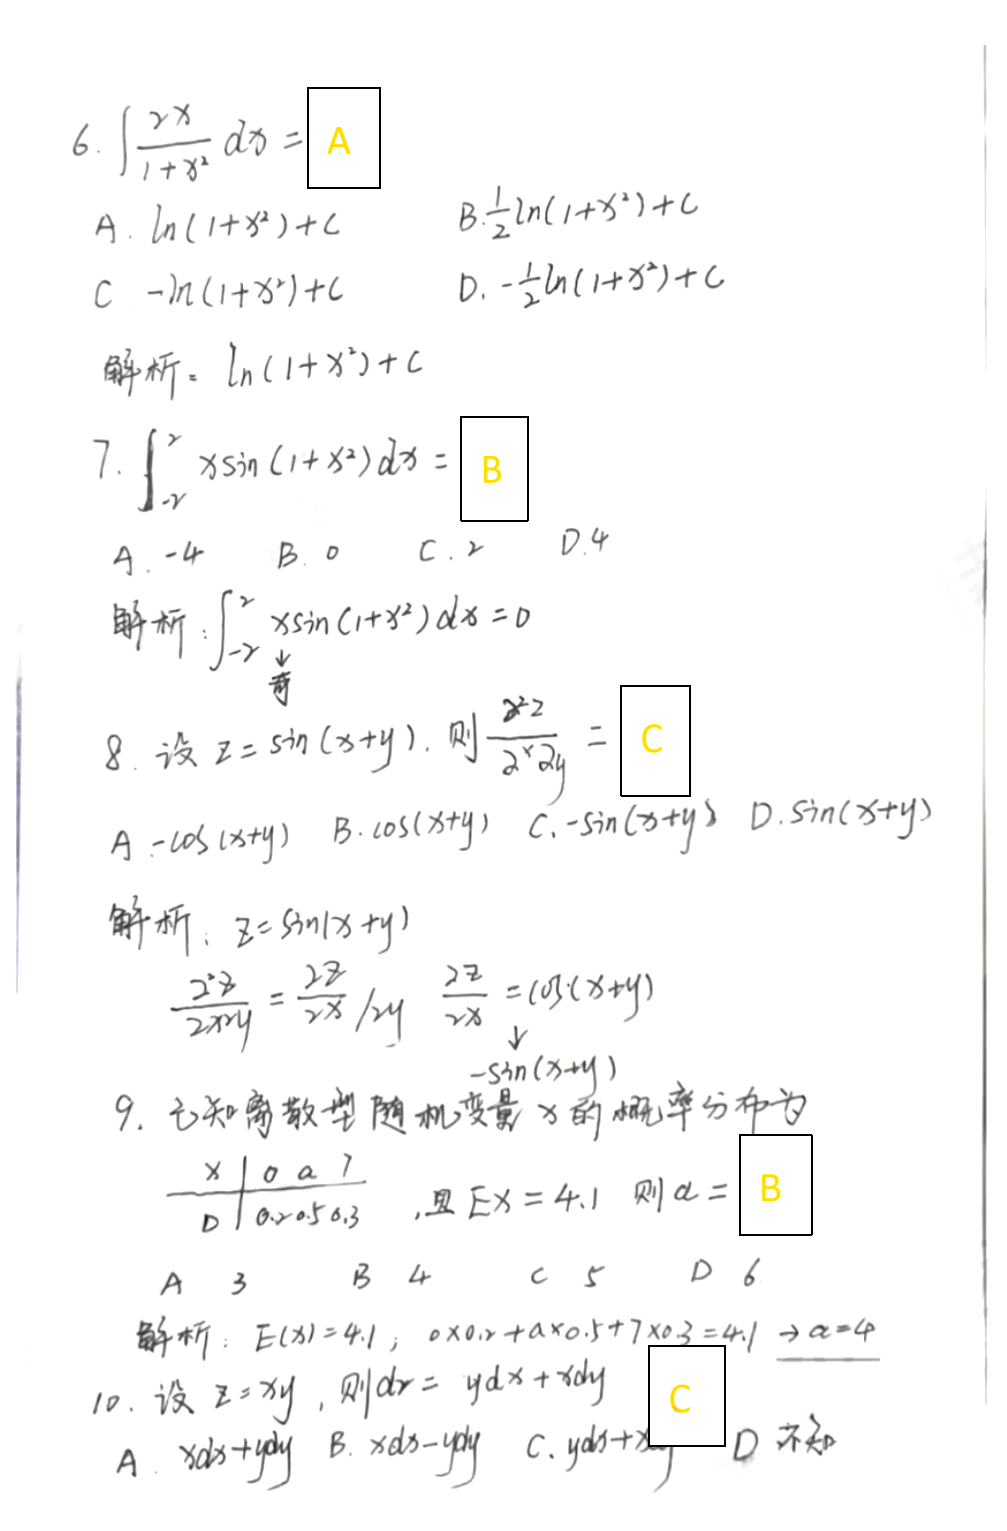 6. ∫ 2x/(1+x²) dx = A
A. ln(1+x²)+C B. 1/2 ln(1+x²)+C
C -ln(1+x²)+C D. -1/2 ln(1+x²)+C
解析: ln(1+x²)+C
7. ∫₋₂² xsin(1+x²)dx = B
A. -4 B. 0 C. 2 D. 4
解析: ∫₋₂² xsin(1+x²)dx=0
↓
奇
8. 设 z=sin(x+y). 则 ∂²z/∂x∂y = C
A -cos(x+y) B. cos(x+y) C. -sin(x+y) D. sin(x+y)
解析: z=sin(x+y)
∂²z/∂x∂y = ∂z/∂x /∂y ∂z/∂x = cos(x+y)
↓
-sin(x+y)
9. 已知离散型随机变量x的概率分布为
X 0 a 7
D 0.2 0.5 0.3 , 且 EX=4.1 则 a= B
A 3 B 4 C 5 D 6
解析: E(x)=4.1; 0×0.2+a×0.5+7×0.3=4.1 → a=4
10. 设 z=xy, 则dz= ydx+xdy C
A. xdx+ydy B. xdx-ydy C. ydx+x D 不知